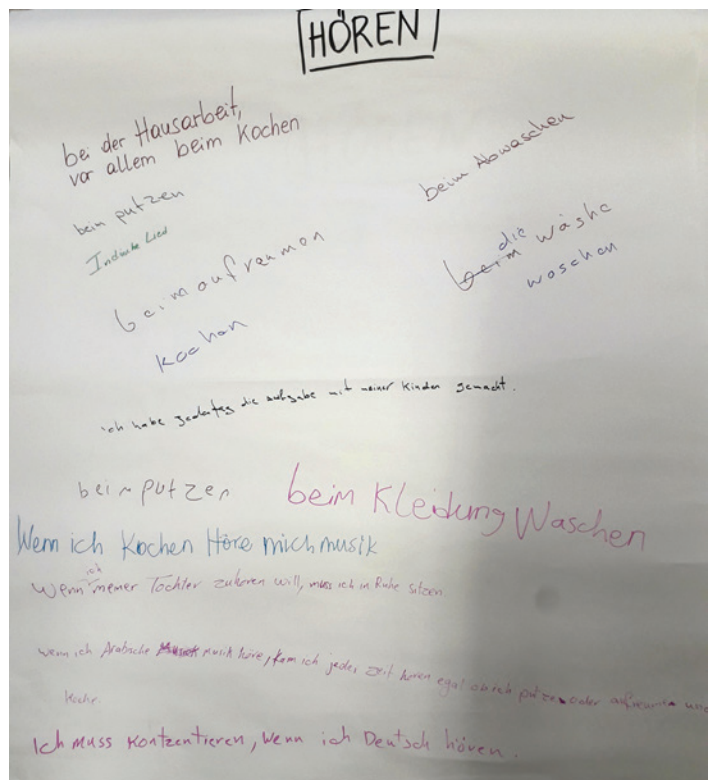 HÖREN
bei der Hausarbeit,
vor allem beim Kochen
beim Abwaschen
beim putzen
Lied
die
beim wäshe
waschen
beim aufreumen
Kochen
ich habe jedentag die aufgabe mit meiner Kinder gemacht.
beim putzen
beim Kleidung Waschen
Wenn ich Kochen Höre mich musik
ich
Wenn meiner Tochter zuhören will, muss ich in Ruhe sitzen.
wenn ich Arabsche musik höre, kam ich jeder zeit hören egal ob ich putzen oder aufreumen und
Koche.
Ich muss Kontzentieren, Wenn ich Deutsch hören.